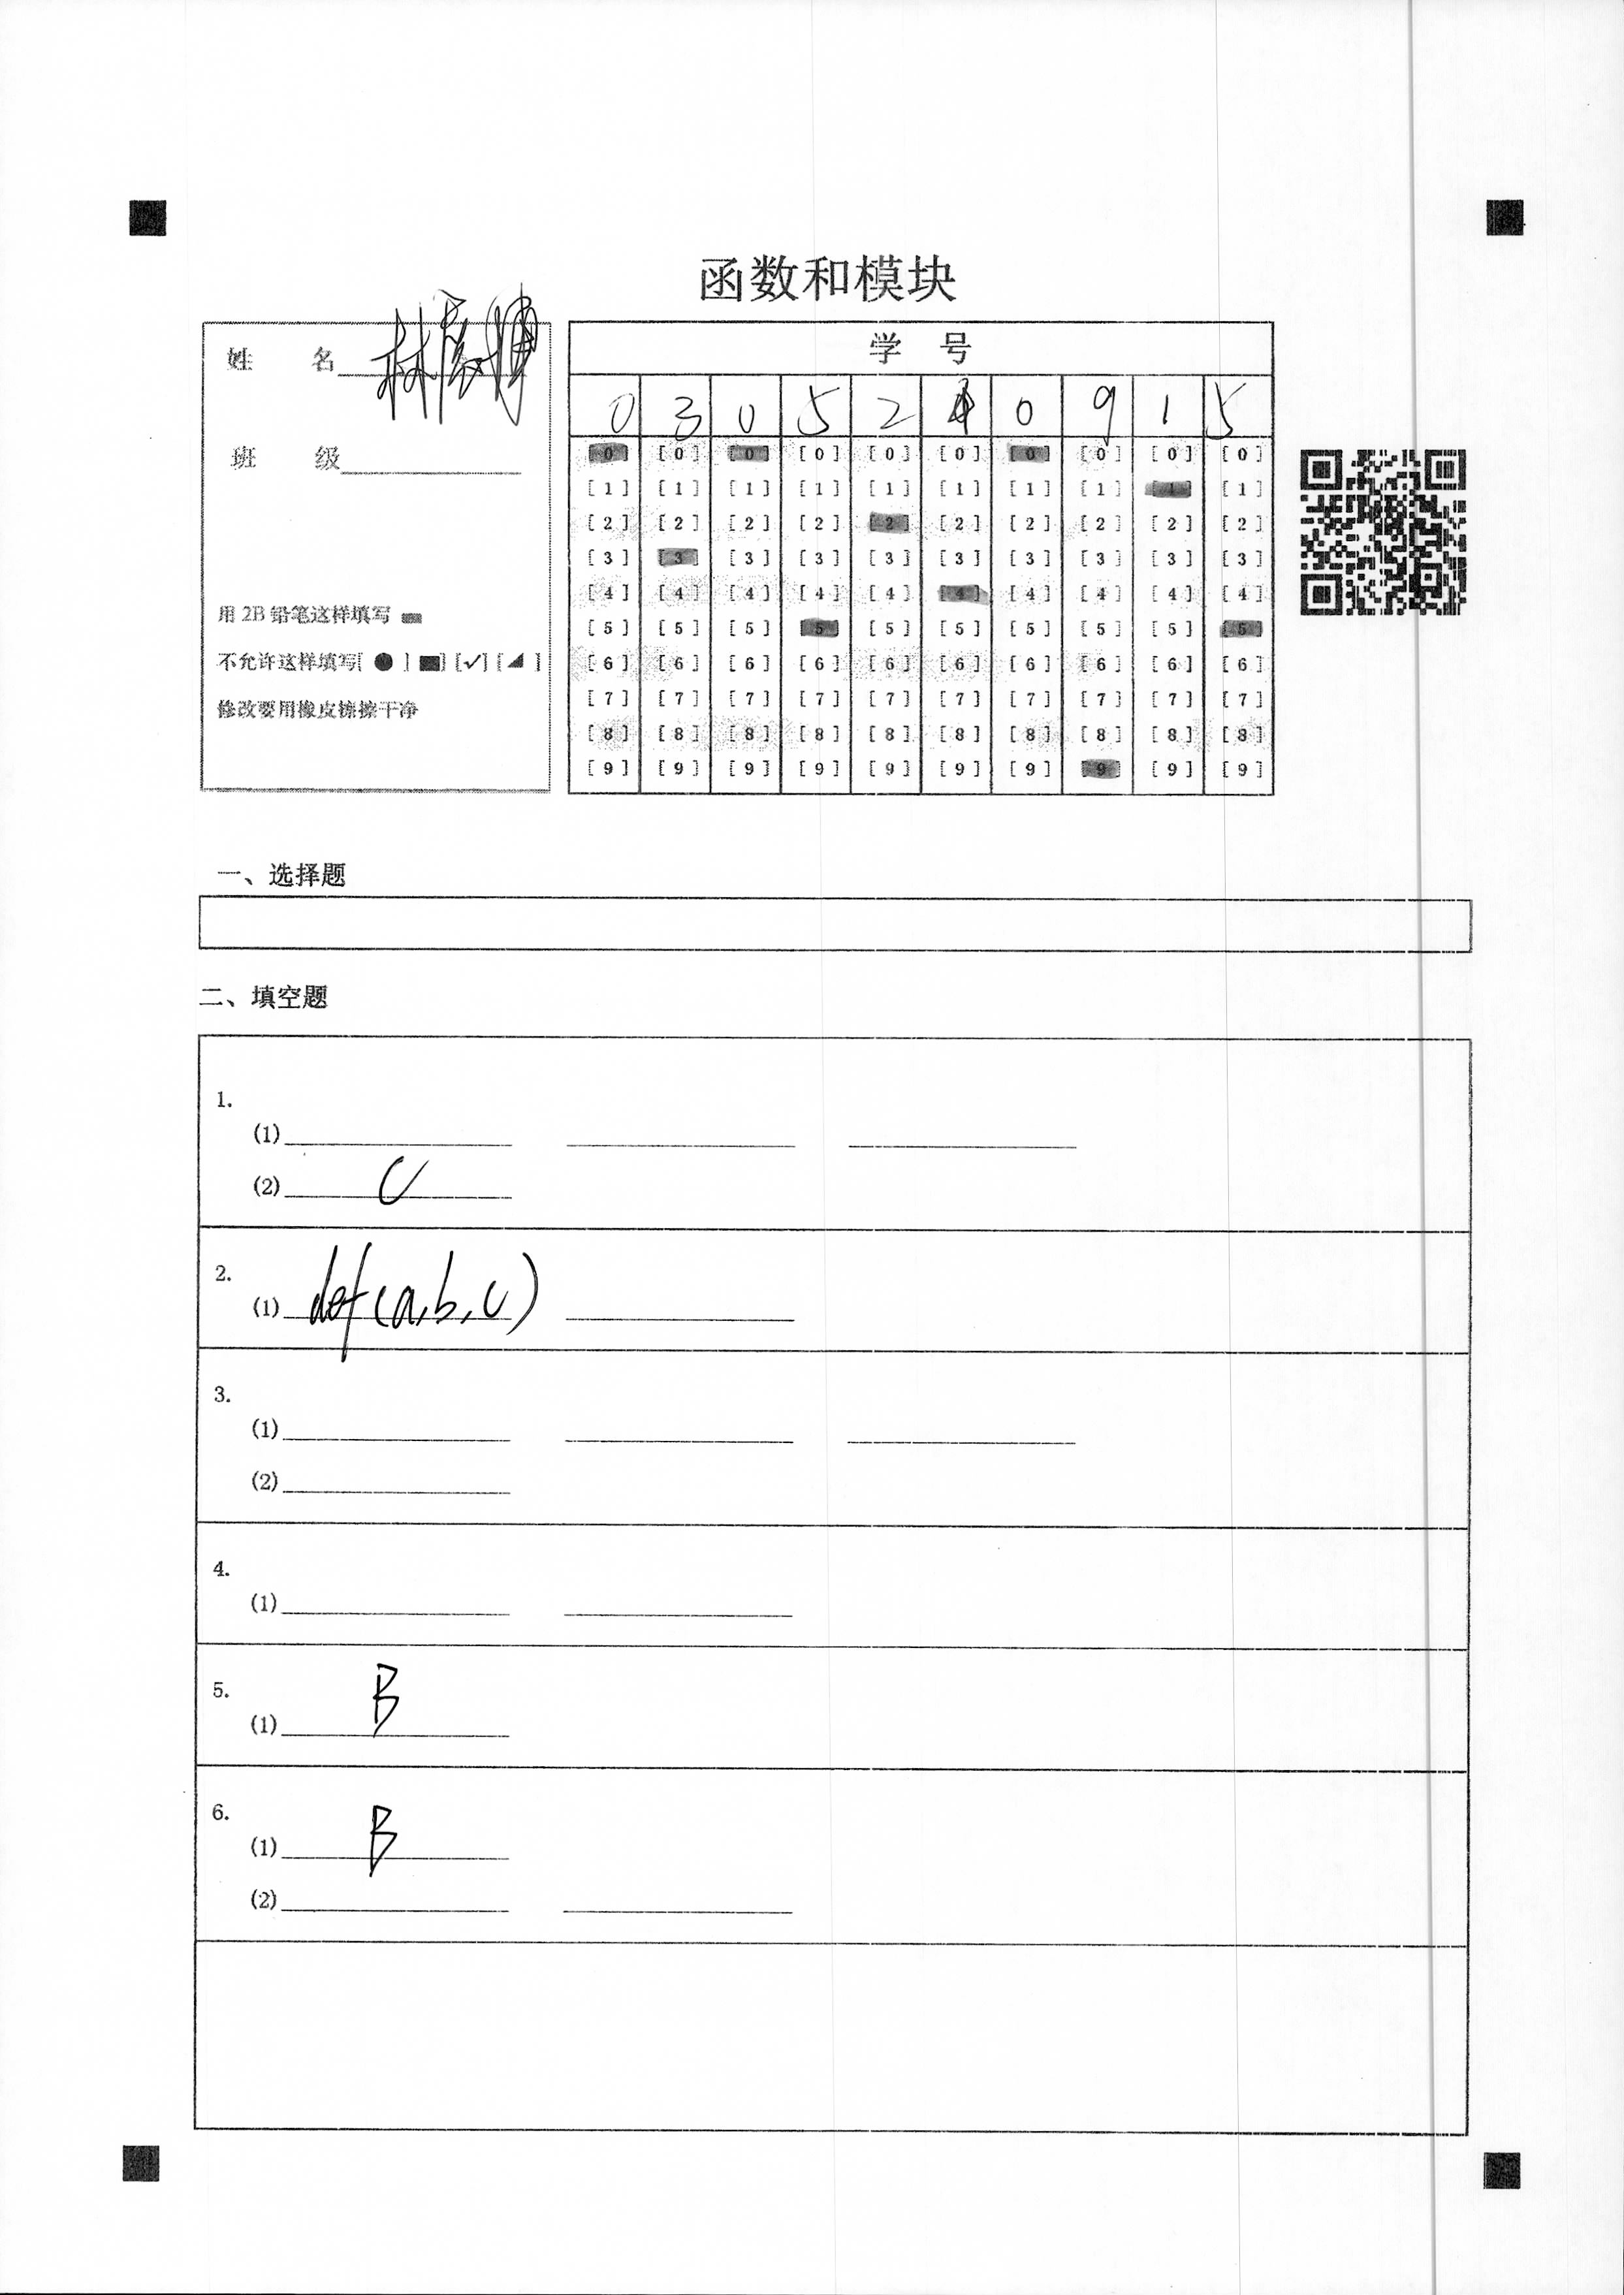 函数和模块
姓 名
班 级
用 2B 铅笔这样填写
不允许这样填写[ ● ] [■] [✓] [◢ ]
修改要用橡皮擦擦干净
学 号
0 3 0 5 2 4 0 9 1 5
[0] [0] [0] [0] [0] [0] [0] [0] [0] [0]
[1] [1] [1] [1] [1] [1] [1] [1] [1] [1]
[2] [2] [2] [2] [2] [2] [2] [2] [2] [2]
[3] [3] [3] [3] [3] [3] [3] [3] [3] [3]
[4] [4] [4] [4] [4] [4] [4] [4] [4] [4]
[5] [5] [5] [5] [5] [5] [5] [5] [5] [5]
[6] [6] [6] [6] [6] [6] [6] [6] [6] [6]
[7] [7] [7] [7] [7] [7] [7] [7] [7] [7]
[8] [8] [8] [8] [8] [8] [8] [8] [8] [8]
[9] [9] [9] [9] [9] [9] [9] [9] [9] [9]
一、选择题
二、填空题
1.
(1)
(2) C
2.
(1) def(a,b,c)
3.
(1)
(2)
4.
(1)
5.
(1) B
6.
(1) B
(2)